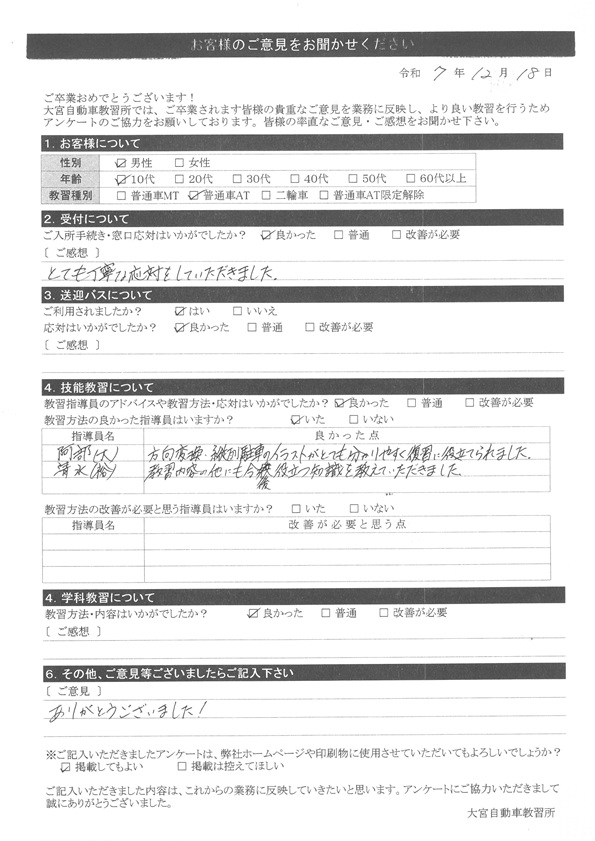 お客様のご意見をお聞かせください
令和 7 年 12 月 18 日
ご卒業おめでとうございます！
大宮自動車教習所では、ご卒業されます皆様の貴重なご意見を業務に反映し、より良い教習を行うため
アンケートのご協力をお願いしております。皆様の率直なご意見・ご感想をお聞かせ下さい。
1. お客様について
性別 ☑ 男性 □ 女性
年齢 ☑ 10代 □ 20代 □ 30代 □ 40代 □ 50代 □ 60代以上
教習種別 □ 普通車MT ☑ 普通車AT □ 二輪車 □ 普通車AT限定解除
2. 受付について
ご入所手続き・窓口応対はいかがでしたか？ ☑ 良かった □ 普通 □ 改善が必要
［ ご感想 ］
とても丁寧な応対をしていただきました。
3. 送迎バスについて
ご利用されましたか？ ☑ はい □ いいえ
応対はいかがでしたか？ ☑ 良かった □ 普通 □ 改善が必要
［ ご感想 ］
4. 技能教習について
教習指導員のアドバイスや教習方法・応対はいかがでしたか？ ☑ 良かった □ 普通 □ 改善が必要
教習方法の良かった指導員はいますか？ ☑ いた □ いない
指導員名 良かった点
阿部(大) 方向変換・縦列駐車のイラストがとても分かりやすく復習に役立てられました。
清水(裕) 教習内容の他にも今後役立つ知識を教えていただきました。
教習方法の改善が必要と思う指導員はいますか？ □ いた □ いない
指導員名 改善が必要と思う点
4. 学科教習について
教習方法・内容はいかがでしたか？ ☑ 良かった □ 普通 □ 改善が必要
［ ご感想 ］
6. その他、ご意見等ございましたらご記入下さい
［ ご意見 ］
ありがとうございました！
※ご記入いただきましたアンケートは、弊社ホームページや印刷物に使用させていただいてもよろしいでしょうか？
☑ 掲載してもよい □ 掲載は控えてほしい
ご記入いただきました内容は、これからの業務に反映していきたいと思います。アンケートにご協力いただきまして
誠にありがとうございました。
大宮自動車教習所